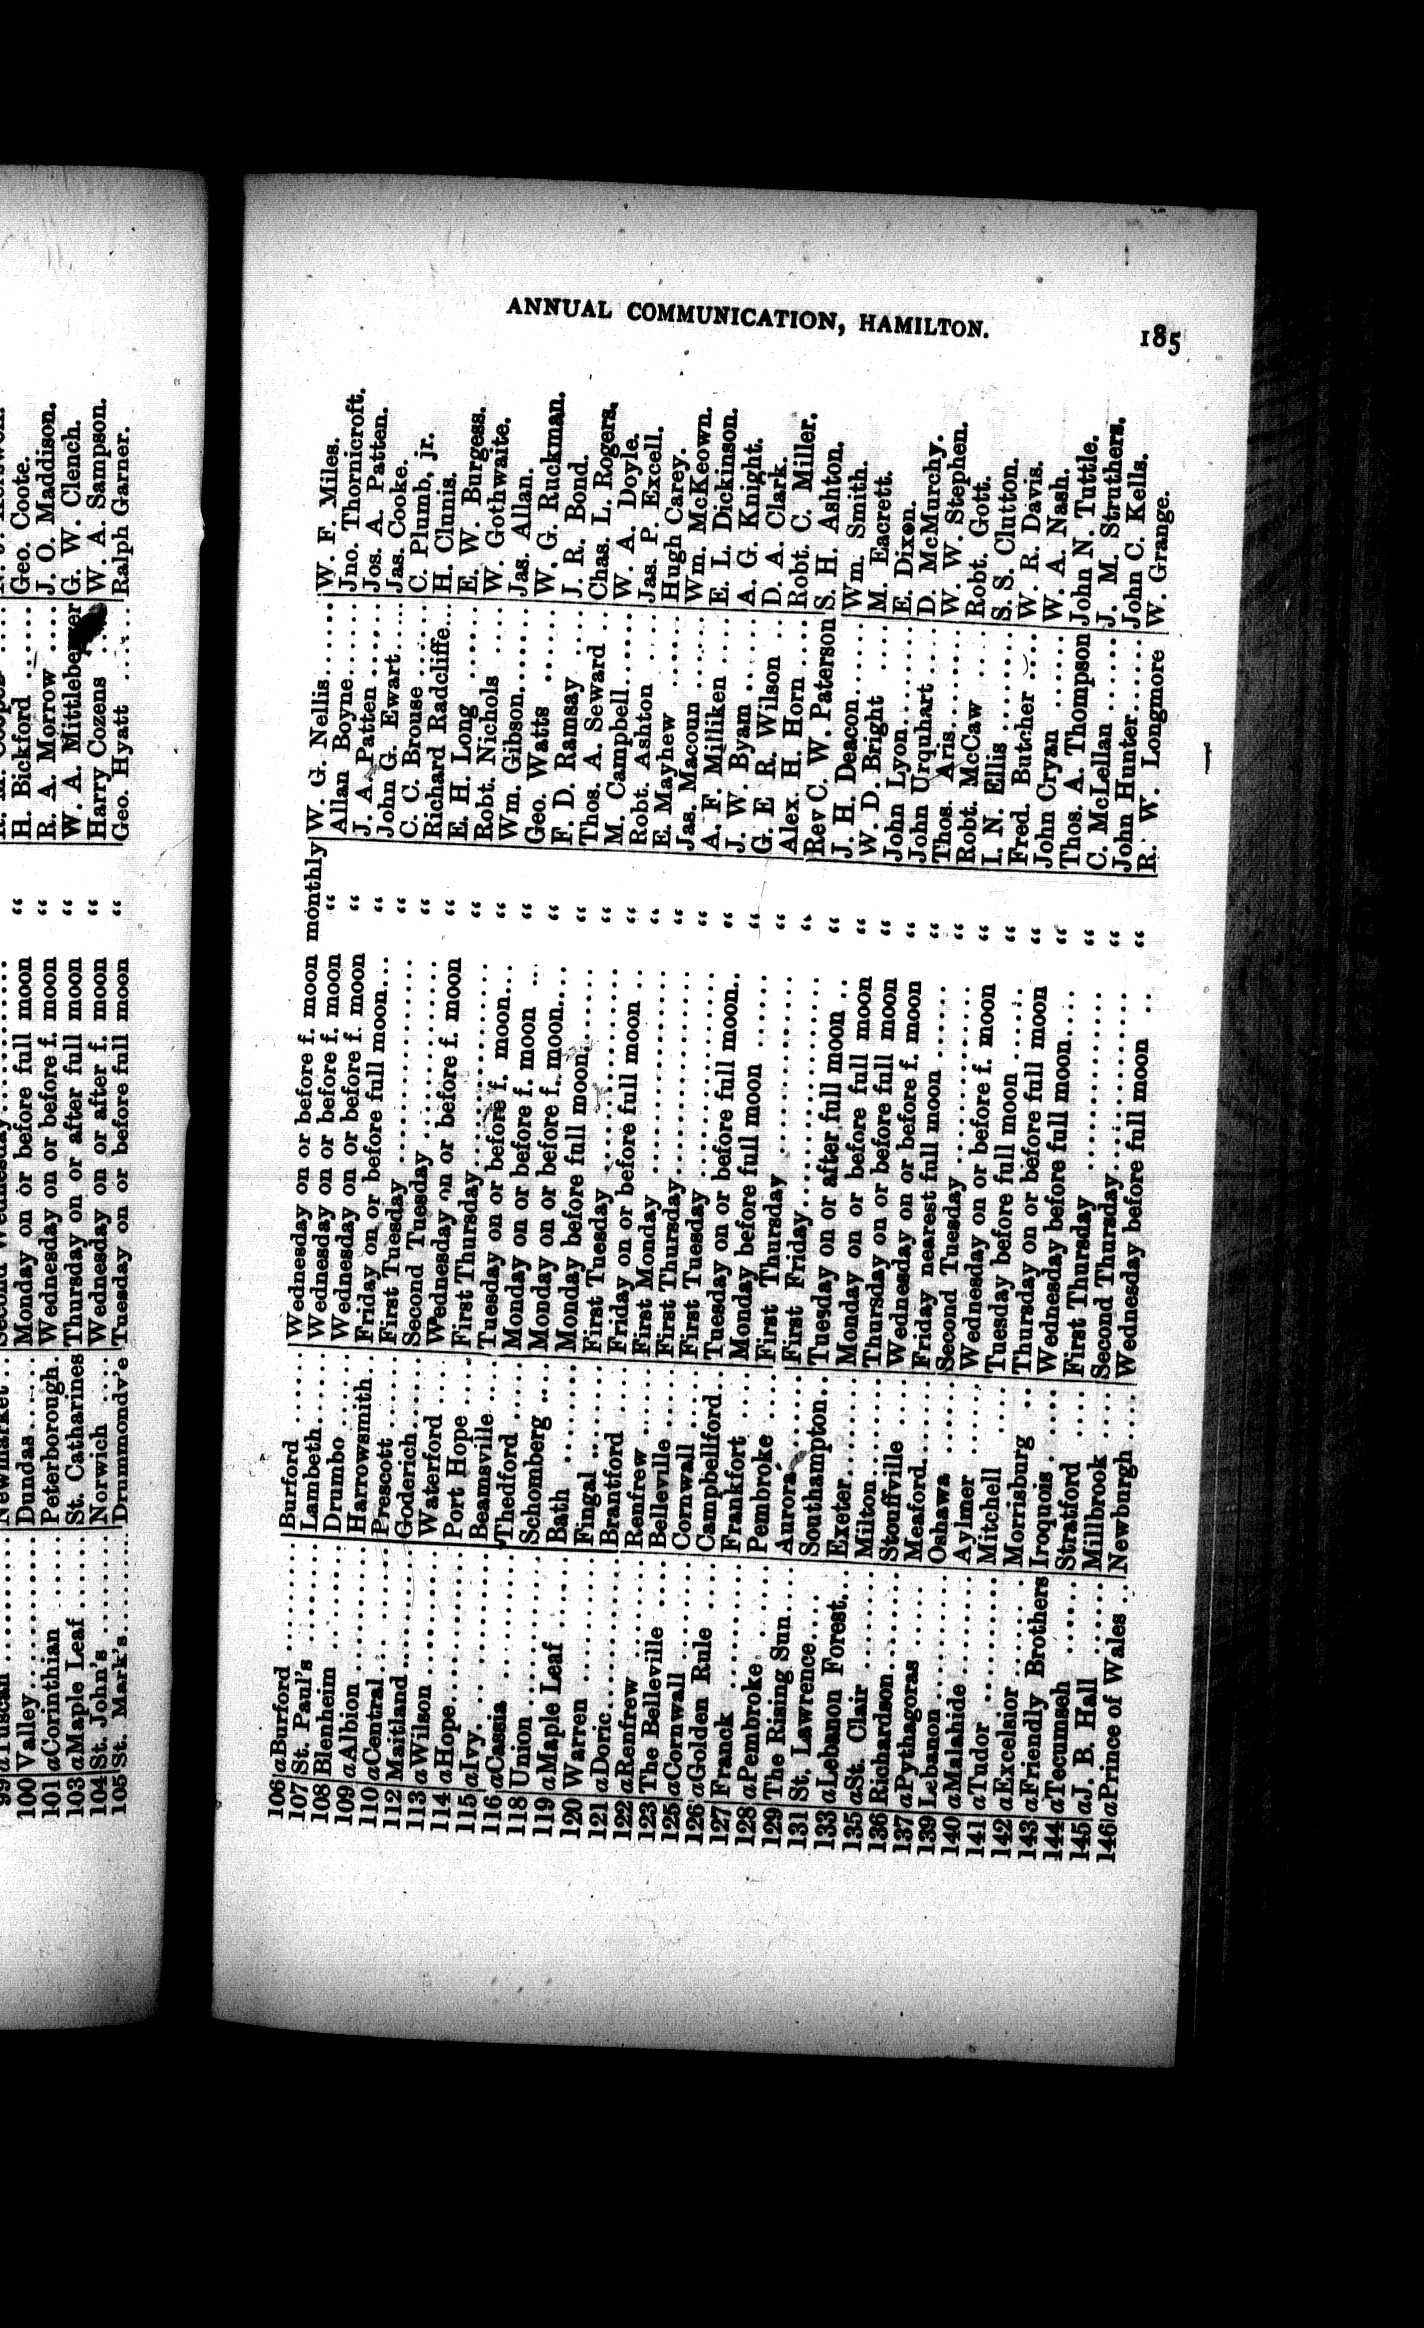 99 aTuscan Newmarket Second Wednesday
100 Valley Dundas Monday on or before full moon “ H. Bickford Geo. Coote.
101 aCorinthian Peterborough. Wednesday on or before f. moon “ R. A. Morrow J. O. Maddison.
103 aMaple Leaf St. Catharines Thursday on or after full moon “ W. A. Mittleberger G. W. Clench.
104 St. John's Norwich Wednesday on or after f. moon “ Harry Cozens W. A. Sampson.
105 St. Mark's Drummondv'e Tuesday on or before full moon “ Geo. Hyatt Ralph Garner.
ANNUAL COMMUNICATION, HAMILTON. 185
106 aBurford Burford Wednesday on or before f. moon monthly W. G. Nellis W. F. Miles.
107 St. Paul's Lambeth Wednesday on or before f. moon “ Allan Boyne Jno. Thornicroft.
108 Blenheim Drumbo Wednesday on or before f. moon “ J. A. Patten Jos. A. Patten.
109 aAlbion Harrowsmith Friday on or before full moon “ John G. Ewart Jas. Cooke.
110 aCentral Prescott First Tuesday “ C. C. Brouse C. Plumb, jr.
112 Maitland Goderich Second Tuesday “ Richard Radcliffe H. Clunis.
113 aWilson Waterford Wednesday on or before f. moon “ E. H. Long E. W. Burgess.
114 aHope Port Hope First Thursday “ Robt. Nichols W. Gothwaite.
115 aIvy Beamsville Tuesday on or before f. moon “ Wm. Gibson Jas. Allan.
116 aCassia Thedford Monday on or before f. moon “ Geo. Watts W. G. Ruckman.
118 Union Schomberg Monday on or before f. moon “ F. D. Ramsay J. R. Bond.
119 aMaple Leaf Bath Monday before full moon “ Thos. A. Seward Chas. L. Rogers.
120 Warren Fingal First Tuesday “ M. Campbell W. A. Doyle.
121 aDoric Brantford Friday on or before full moon “ Robt. Ashton Jas. P. Excell.
122 aRenfrew Renfrew First Monday “ E. Mayhew Hugh Carey.
123 The Belleville Belleville First Thursday “ Jas. Macoun Wm. McKeown.
125 aCornwall Cornwall First Tuesday “ A. F. Milliken E. L. Dickinson.
126 aGolden Rule Campbellford Tuesday on or before full moon “ J. W. Byam A. G. Knight.
127 Franck Frankfort Monday before full moon “ G. E R. Wilson D. A. Clark.
128 aPembroke Pembroke First Thursday “ Alex. H. Horn Robt. C. Miller.
129 The Rising Sun Aurora First Friday “ Rev C. W. Paterson S. H. Ashton.
131 St. Lawrence Southampton Tuesday on or after full moon “ J. H. Deacon Wm. Smith.
133 aLebanon Forest Exeter Monday on or before full moon “ W. D. Bright M. Eacrett.
135 aSt. Clair Milton Thursday on or before full moon “ John Lyon E. Dixon.
136 Richardson Stouffville Wednesday on or before f. moon “ John Urquhart D. McMurchy.
137 aPythagoras Meaford Friday nearest full moon “ Thos. Aris W. W. Stephen.
139 Lebanon Oshawa Second Tuesday “ Robt. McCaw Robt. Gott.
140 aMalahide Aylmer Wednesday on or before f. moon “ I. N. Ellis S. S. Clutton.
141 aTudor Mitchell Tuesday before full moon “ Fred. Butcher W. R. Davis.
142 aExcelsior Morrisburg Thursday on or before full moon “ John Cryan W. A. Nash.
143 aFriendly Brothers Iroquois Wednesday before full moon “ Thos. A. Thompson John N. Tuttle.
144 aTecumseh Stratford First Thursday “ C. McLellan J. M. Struthers.
145 aJ. B. Hall Millbrook Second Thursday “ John Hunter John C. Kells.
146 aPrince of Wales Newburgh Wednesday before full moon “ R. W. Longmore W. Grange.